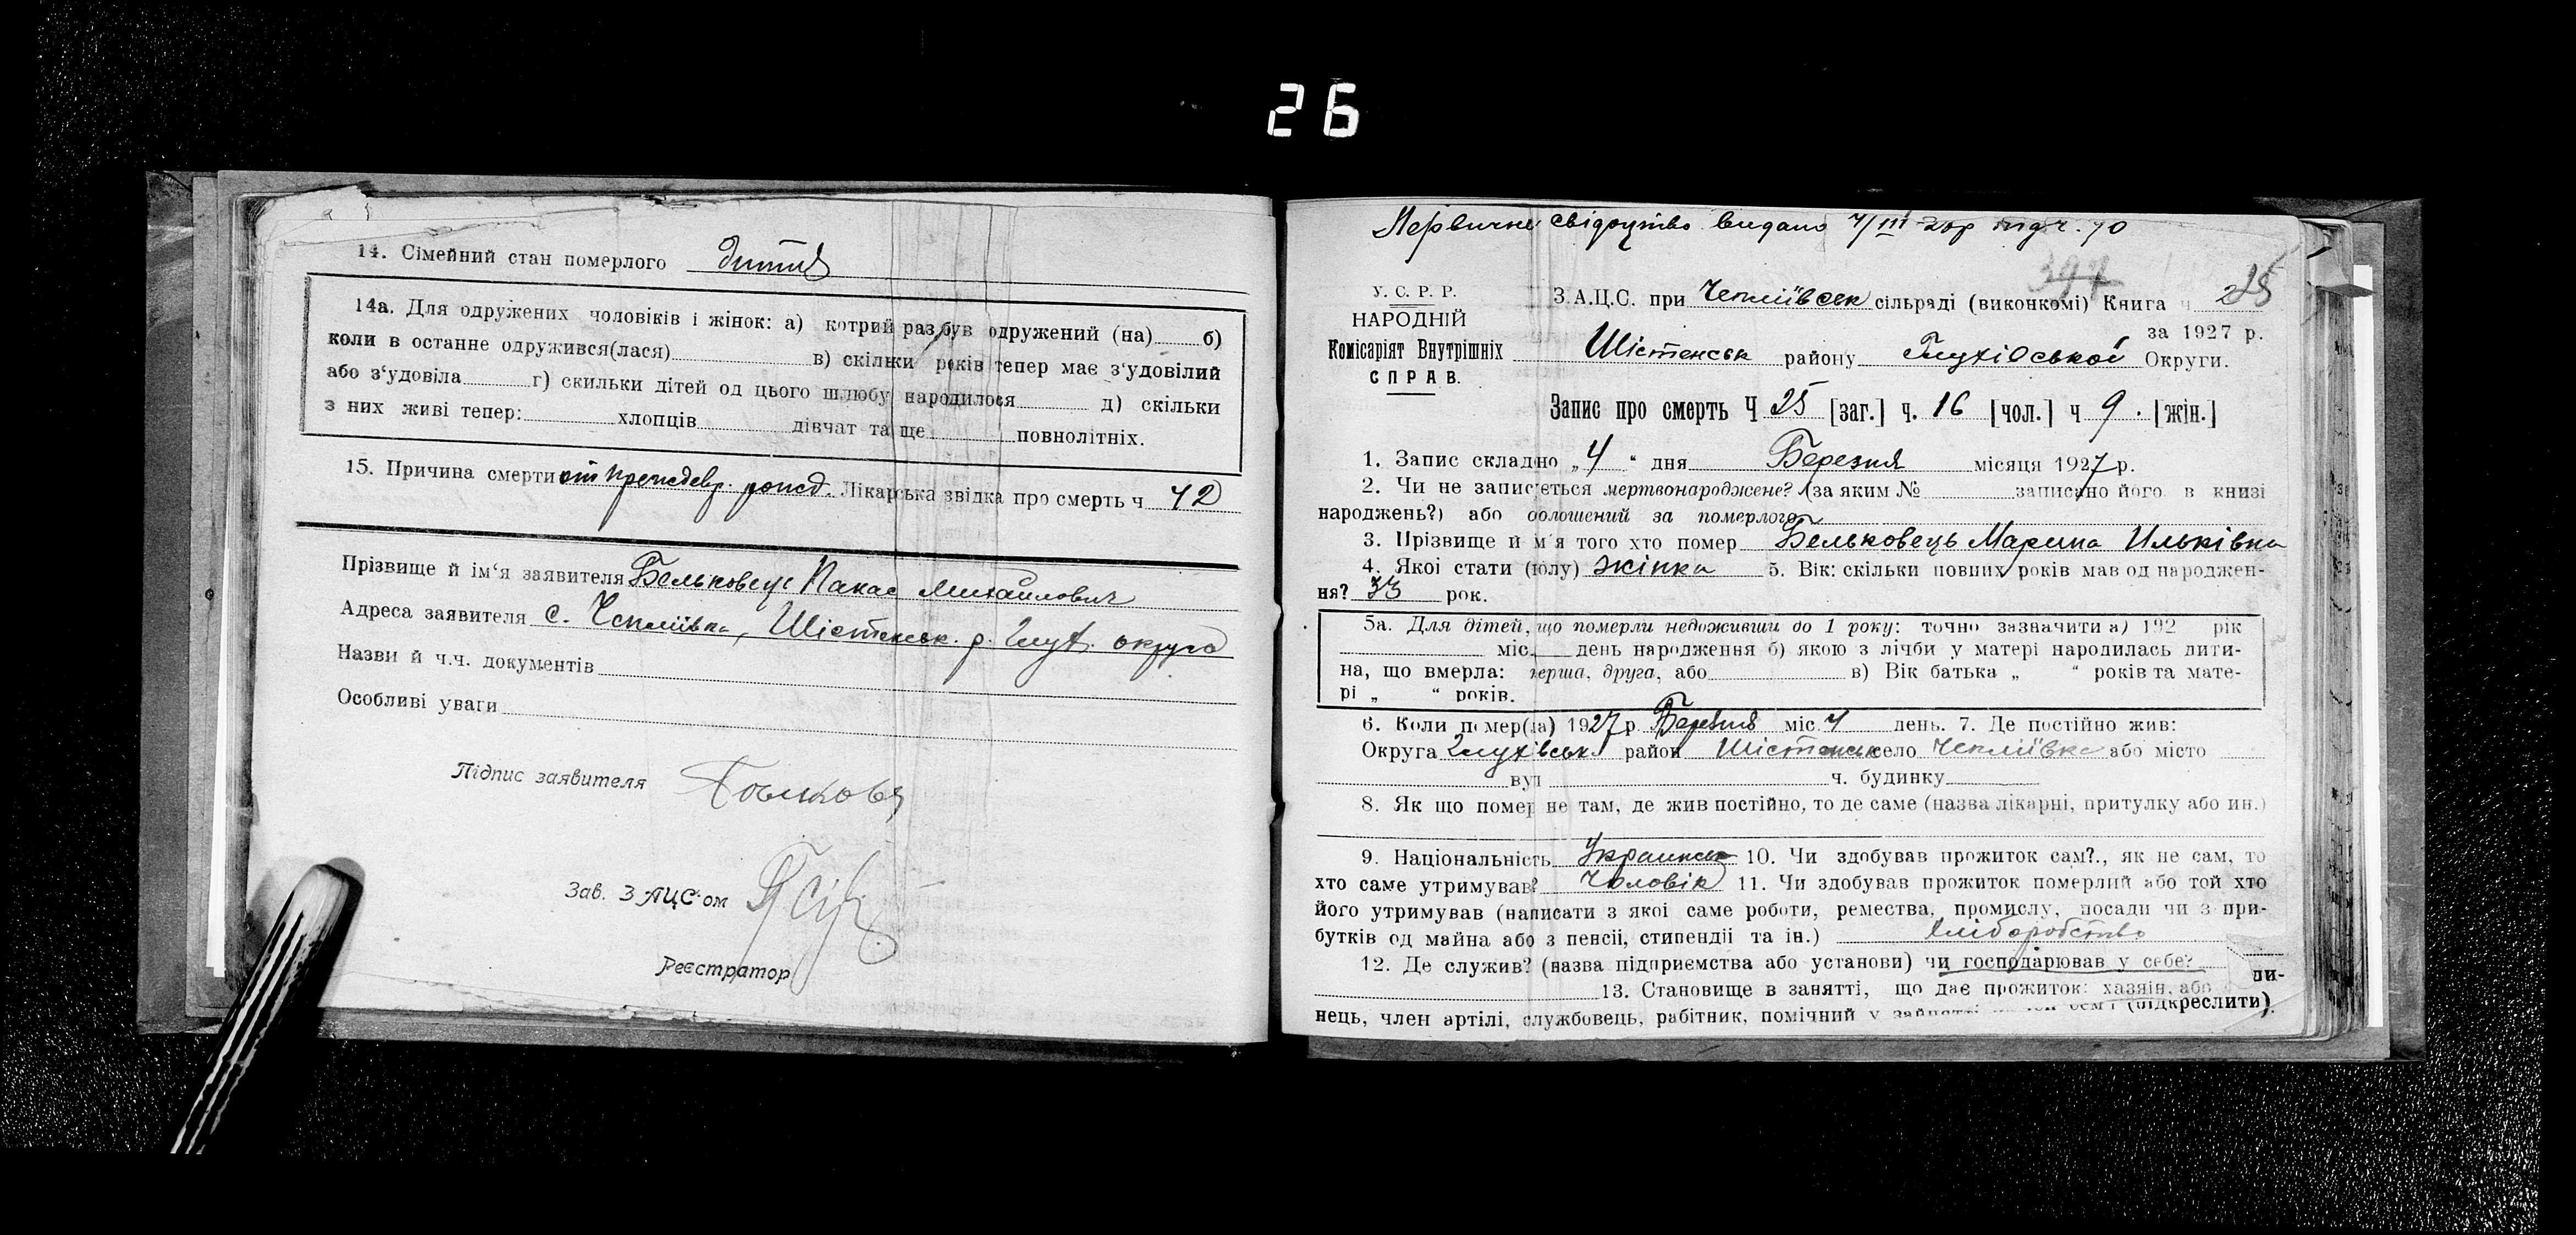 26
14. Сімейний стан померлого дитина
14а. Для одружених чоловіків і жінок: а) котрий раз був одружений (на) б)
коли в останне одружився(лася) в) скільки років тепер має з'удовілий
або з'удовіла г) скильки дітей од цього шлюбу народилося д) скільки
з них живі тепер: хлопців дівчат та ще повнолітніх.
15. Причина смерти от преждевр. рожд. Лікарська звідка про смерть ч 42
Прізвище й ім'я заявителя Бельковець Панас Михайлович
Адреса заявителя с. Чепліївка, Шістенськ. р. Глух. округа
Назви й ч.ч. документів
Особливі уваги
Підпис заявителя
Зав. ЗАЦС'ом
Реєстратор
Первичне свідоцтво видано 4/III 70
У. С. Р. Р.
НАРОДНІЙ
Комісаріят Внутрішніх
СПРАВ.
397
З.А.Ц.С. при Чепліївськ сільраді (виконкомі) Книга ч 25
за 1927 р.
Шістенськ району Глухівської Округи.
Запис про смерть Ч 25 [заг.] ч. 16 [чол.] ч 9. [жін.]
1. Запис складно „4" дня Березня місяця 1927 р.
2. Чи не записується мертвонароджене? (за яким № записано його в книзі
народжень?) або оголошений за померлого
3. Прізвище й им'я того хто помер Бельковець Марина Ильківна
4. Якої стати (полу) жінка 5. Вік: скільки повних років мав од народжен-
ня? 33 рок.
5а. Для дітей, що померли недоживши до 1 року: точно зазначити а) 192 рік
міс. день народження б) якою з лічби у матері народилась дити-
на, що вмерла: перша, друга, або в) Вік батька „ " років та мате-
рі „ " років.
6. Коли помер(ла) 1927 р. Березня міс. 4 день. 7. Де постійно жив:
Округа Глухівськ район Шістенськ село Чепліївка або місто
вул ч. будинку
8. Як що помер не там, де жив постійно, то де саме (назва лікарні, притулку або ин.)
9. Національність Украинськ 10. Чи здобував прожиток сам?., як не сам, то
хто саме утримував? Чоловік 11. Чи здобував прожиток померлий або той хто
його утримував (написати з якої саме роботи, ремества, промислу, посади чи з при-
бутків од майна або з пенсії, стипендії та ін.) Хліборобство
12. Де служив? (назва підприємства або установи) чи господарював у себе?
13. Становище в занятті, що дає прожиток: хазяїн, або ди-
нець, член артілі, службовець, рабітник, помічний у (підкреслити)